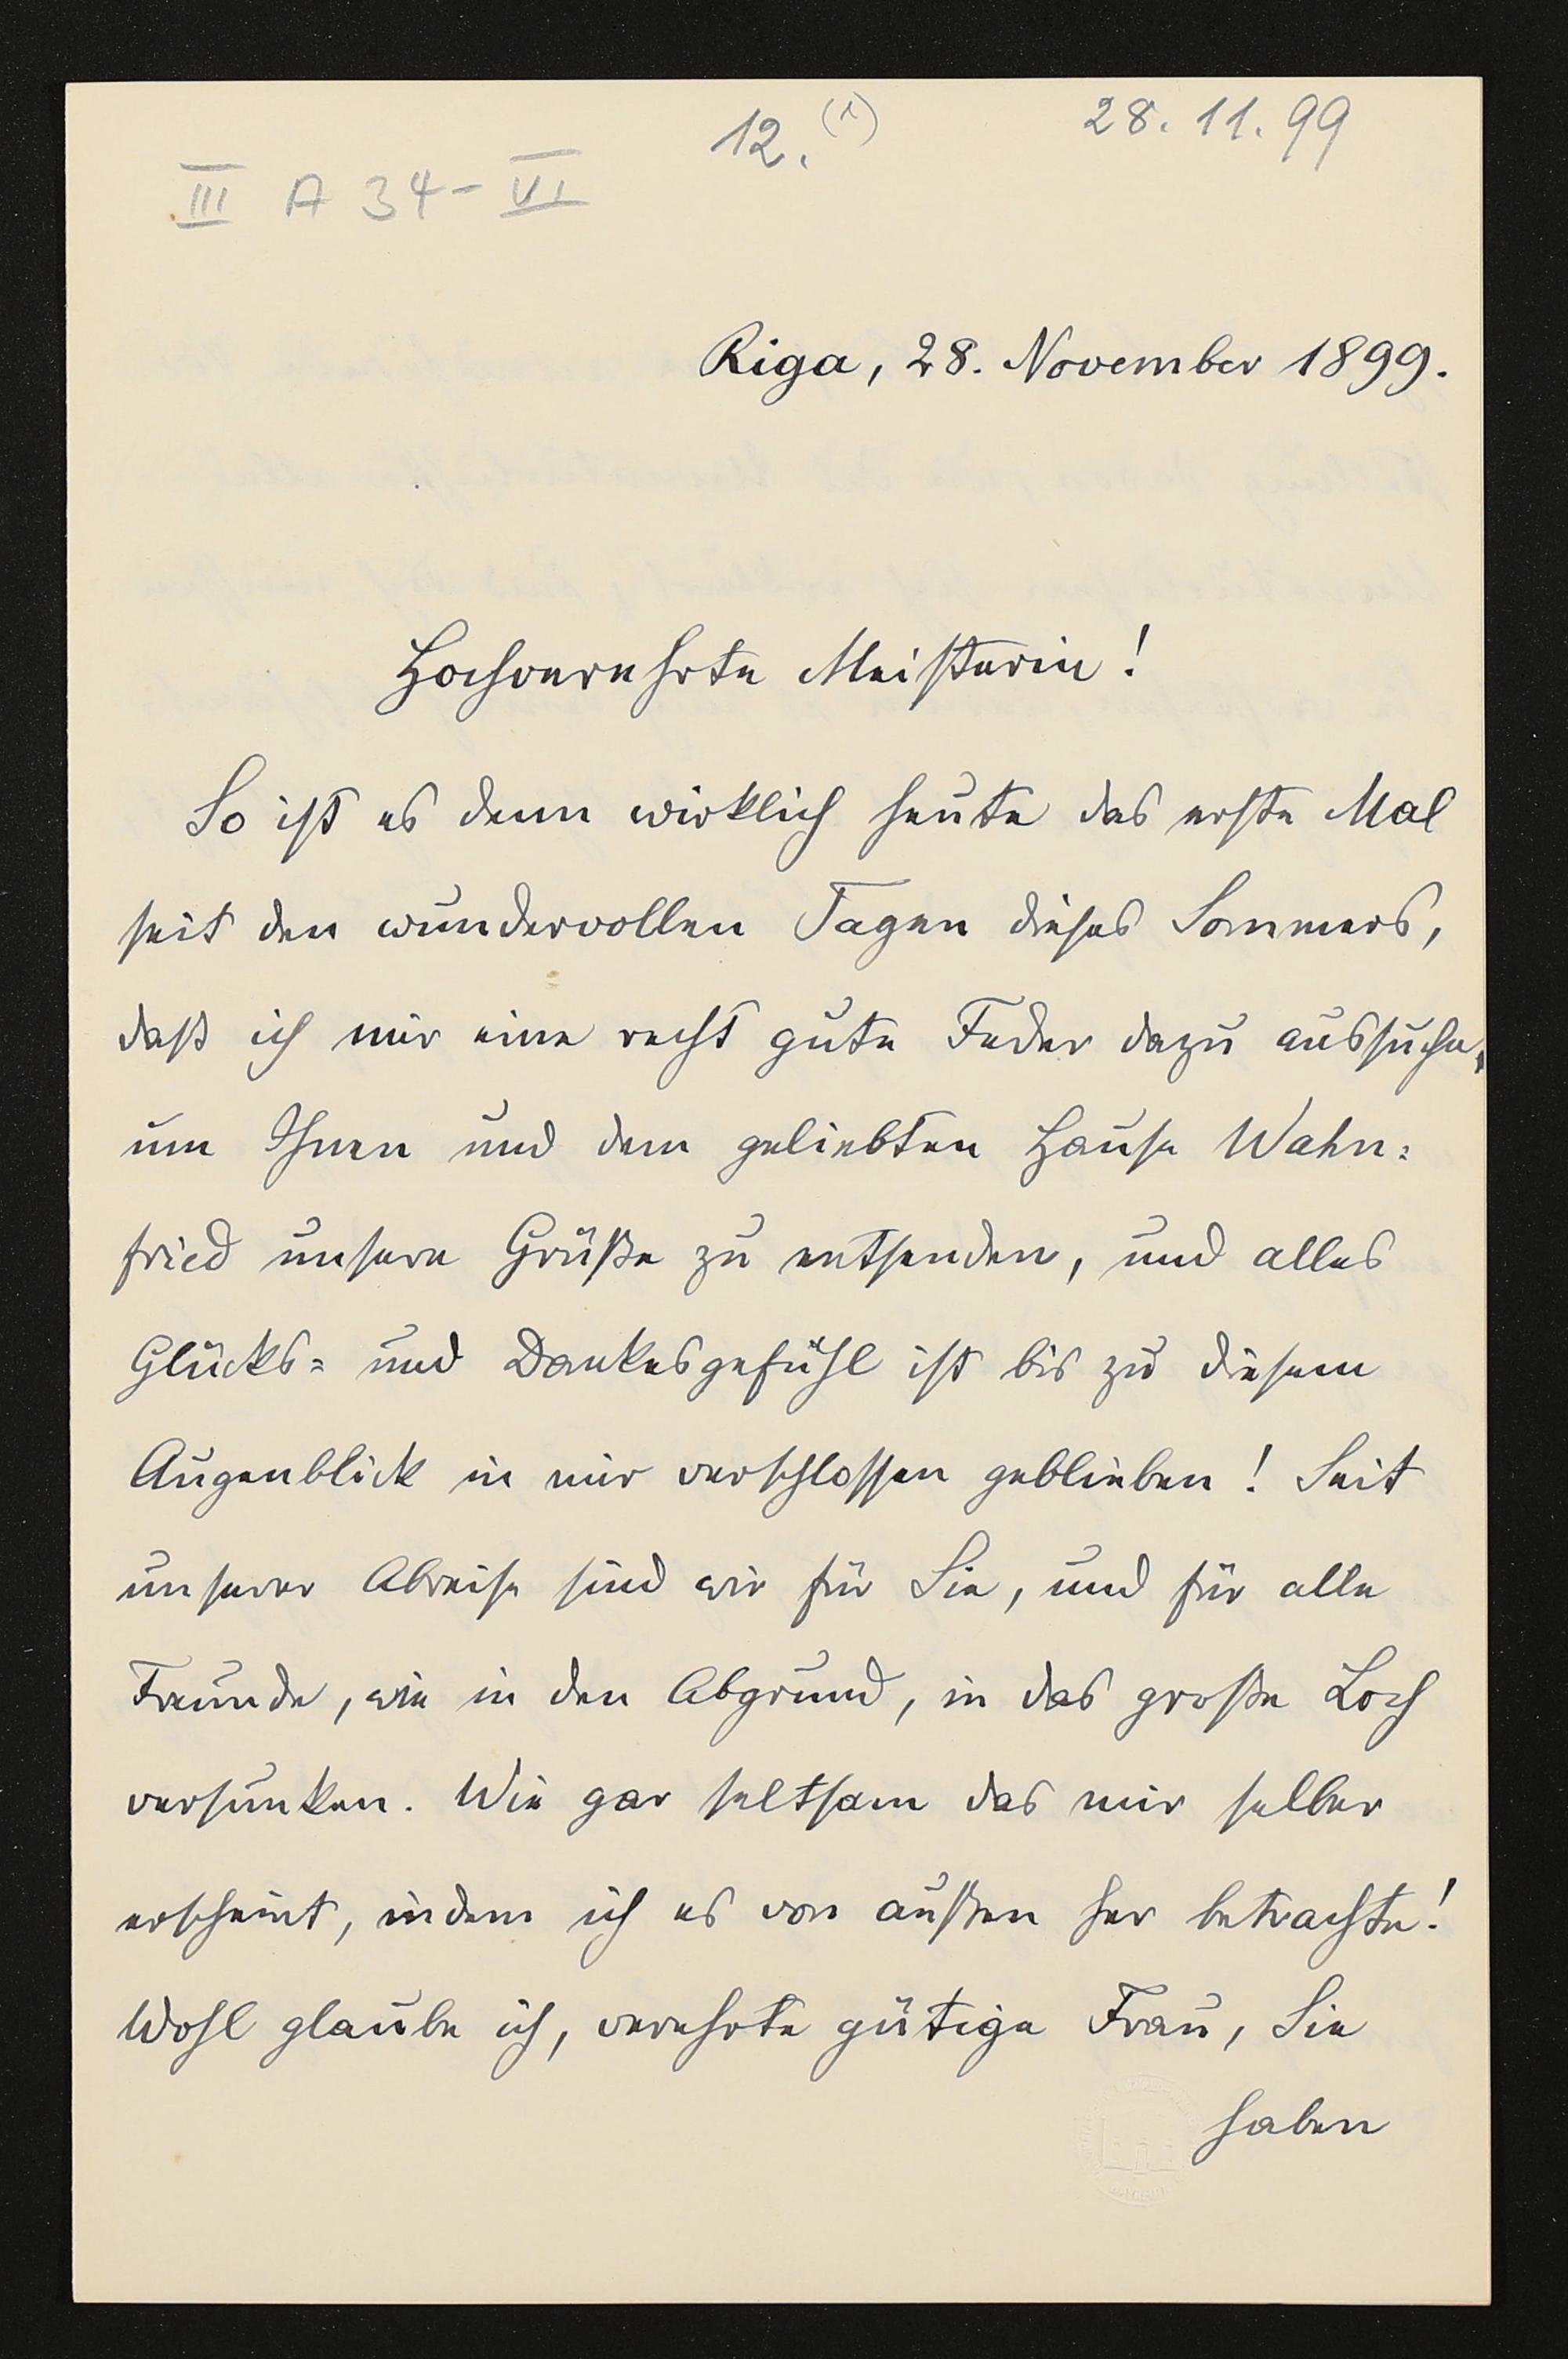 12. (1)
28. 11. 99
III A 34 - VI
Riga, 28. November 1899.
Hochverehrte Meisterin!
So ist es denn wirklich heute das erste Mal
seit den wundervollen Tagen dieses Sommers,
daß ich mir eine recht gute Feder dazu aussuche,
um Ihnen und dem geliebten Hause Wahn=
fried unsere Grüße zu entsenden, und alles
Glücks= und Dankesgefühl ist bis zu diesem
Augenblick in mir verschlossen geblieben! Seit
unserer Abreise sind wir für Sie, und für alle
Freunde, wie in den Abgrund, in das große Loch
versunken. Wie gar seltsam das mir selber
erscheint, indem ich es von außen her betrachte!
Wohl glaube ich, verehrte gütige Frau, Sie
haben